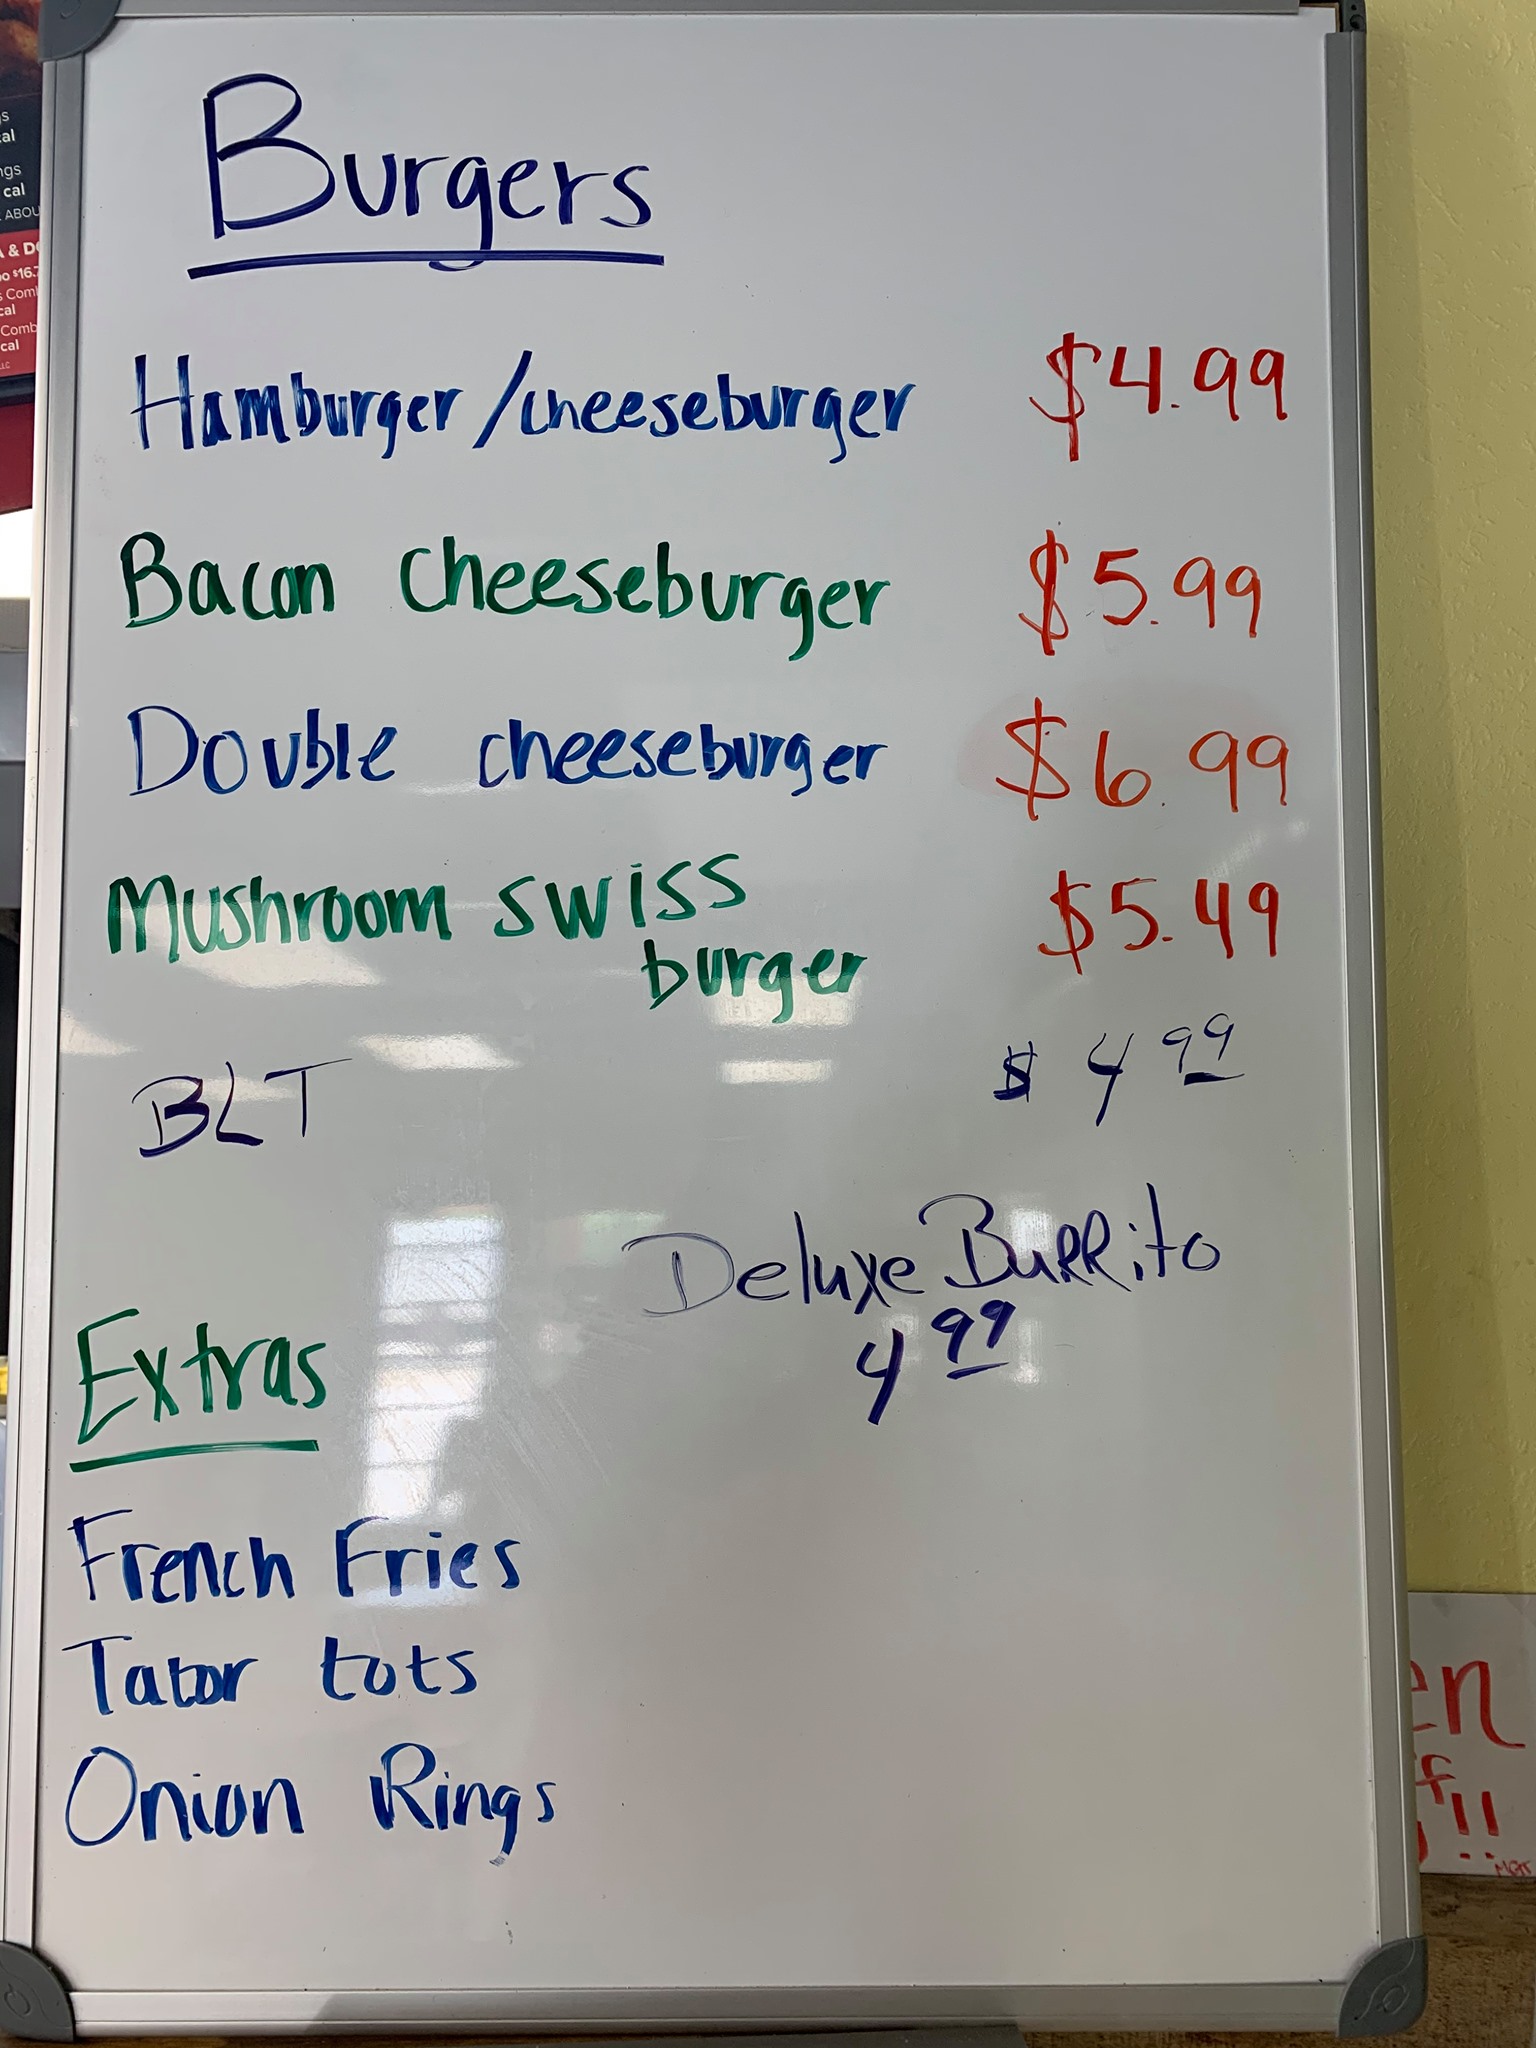 Burgers
Hamburger/cheeseburger $4.99
Bacon cheeseburger $5.99
Double cheeseburger $6.99
Mushroom swiss $5.49
burger
BLT $4 99
Deluxe Burrito
4 99
Extras
French Fries
Tator tots
Onion Rings
cal
cal
& 
$16.7
cal
Comb
cal
LLC
!!
MGT